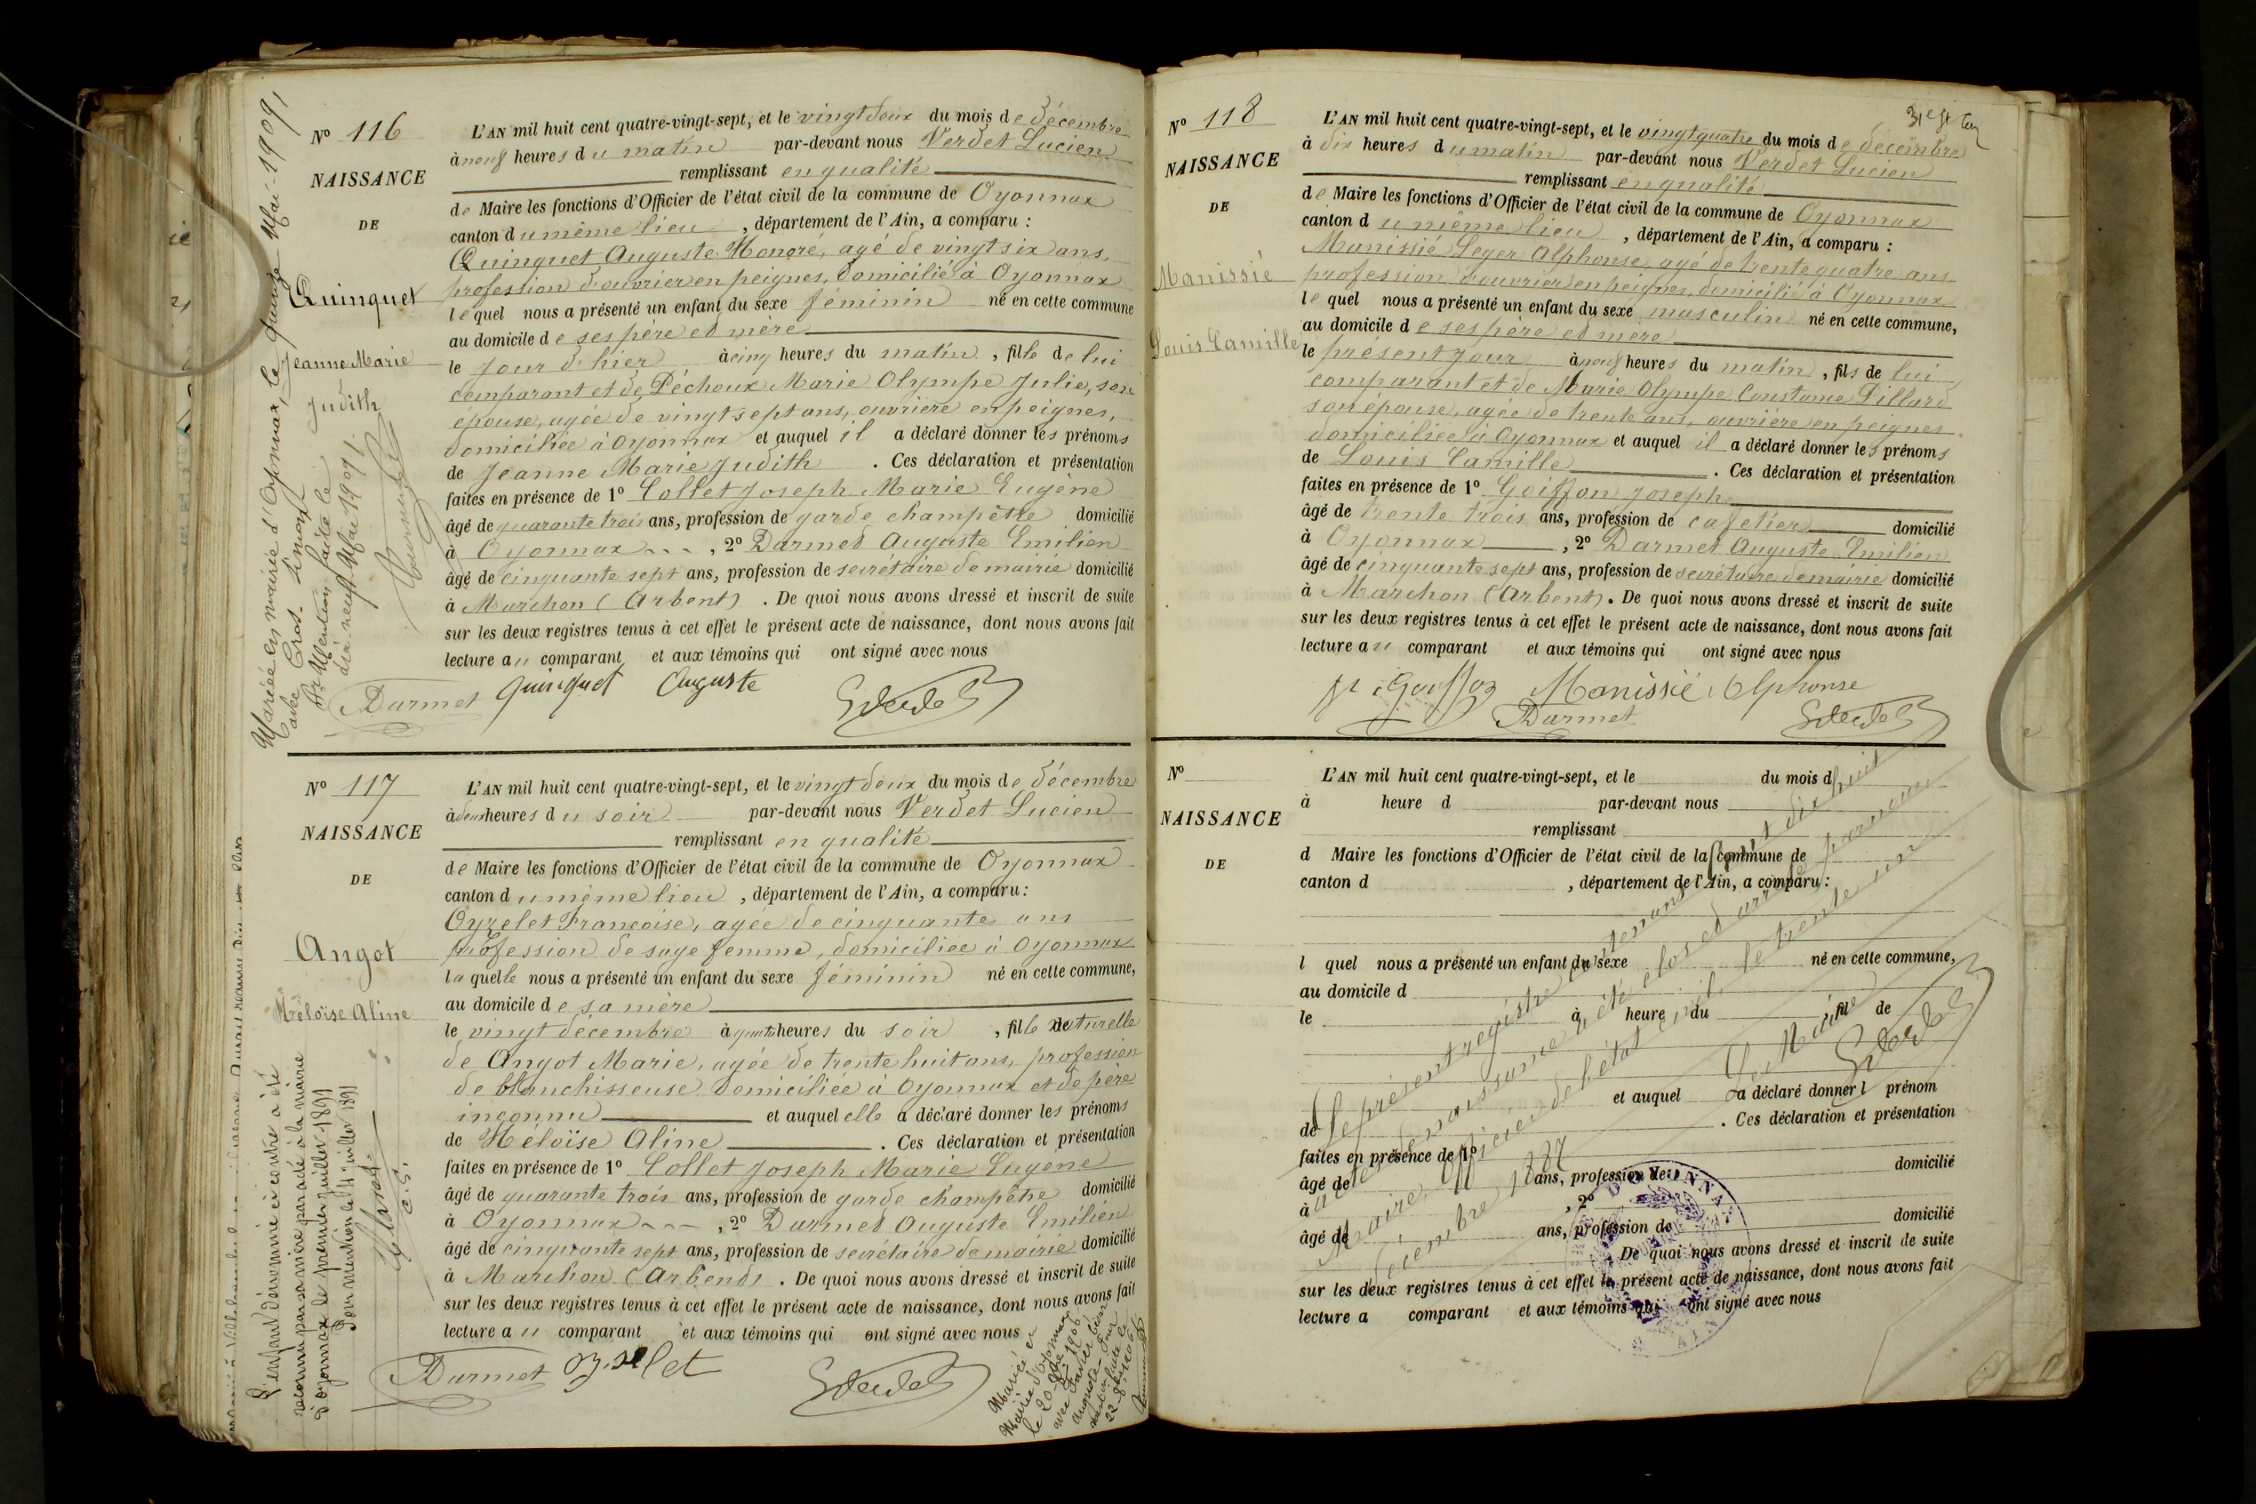 Nº 116
NAISSANCE
DE
Quinquet
Jeanne Marie
Judith
Mariée en mairie d'Oyonnax, le quinze Mai 1909,
avec
Mention faite le
dix neuf Mai 1909.
L'AN mil huit cent quatre-vingt-sept, et le vingt deux du mois de décembre
à neuf heures du matin par-devant nous Verdet Lucien
remplissant en qualité
de Maire les fonctions d'Officier de l'état civil de la commune de Oyonnax
canton du même lieu, département de l'Ain, a comparu :
Quinquet Auguste Honoré, agé de vingt six ans,
profession d'ouvrier en peignes, domicilié à Oyonnax
lequel nous a présenté un enfant du sexe féminin né en cette commune
au domicile de ses père et mère
le jour d'hier à cinq heures du matin, fille de lui
comparant et de Péchoux Marie Olympe Julie, son
épouse, agée de vingt sept ans, ouvrière en peignes,
domiciliée à Oyonnax et auquel il a déclaré donner les prénoms
de Jeanne Marie Judith. Ces déclaration et présentation
faites en présence de 1º Collet Joseph Marie Eugène
âgé de quarante trois ans, profession de garde champêtre domicilié
à Oyonnax, 2º Darmet Auguste Emilien
âgé de cinquante sept ans, profession de secrétaire de mairie domicilié
à Marchon (Arbent). De quoi nous avons dressé et inscrit de suite
sur les deux registres tenus à cet effet le présent acte de naissance, dont nous avons fait
lecture au comparant et aux témoins qui ont signé avec nous
Darmet Quinquet Auguste
Nº 117
NAISSANCE
DE
Angot
Héloïse Aline
L'enfant dénommé ci contre a été
reconnu par sa mère par acte à la mairie
d'Oyonnax le premier juillet 1891
Dont mention le 4 juillet 1891
L'AN mil huit cent quatre-vingt-sept, et le vingt deux du mois de décembre
à deux heures du soir par-devant nous Verdet Lucien
remplissant en qualité
de Maire les fonctions d'Officier de l'état civil de la commune de Oyonnax
canton du même lieu, département de l'Ain, a comparu :
Oyzelet Francoise, agée de cinquante ans
profession de sage femme, domiciliée à Oyonnax
laquelle nous a présenté un enfant du sexe féminin né en cette commune,
au domicile de sa mère
le vingt décembre à quatre heures du soir, fille naturelle
de Angot Marie, agée de trente huit ans, profession
de blanchisseuse domiciliée à Oyonnax et de père
inconnu et auquel elle a déclaré donner les prénoms
de Héloïse Aline. Ces déclaration et présentation
faites en présence de 1º Collet Joseph Marie Eugène
âgé de quarante trois ans, profession de garde champêtre domicilié
à Oyonnax, 2º Darmet Auguste Emilien
âgé de cinquante sept ans, profession de secrétaire de mairie domicilié
à Marchon (Arbent). De quoi nous avons dressé et inscrit de suite
sur les deux registres tenus à cet effet le présent acte de naissance, dont nous avons fait
lecture au comparant et aux témoins qui ont signé avec nous
Darmet Oyzelet
Mariée en
Mairie d'Oyonnax
le 20 1906
avec
Nº 118
NAISSANCE
DE
Manissié
Louis Camille
L'AN mil huit cent quatre-vingt-sept, et le vingt quatre du mois de décembre
à dix heures du matin par-devant nous Verdet Lucien
remplissant en qualité
de Maire les fonctions d'Officier de l'état civil de la commune de Oyonnax
canton du même lieu, département de l'Ain, a comparu :
Manissié Leger Alphonse, agé de trente quatre ans
profession d'ouvrier en peignes, domicilié à Oyonnax
lequel nous a présenté un enfant du sexe masculin né en cette commune,
au domicile de ses père et mère
le présent jour à neuf heures du matin, fils de lui
comparant et de Marie Olympe Constance Pillard
son épouse, agée de trente ans, ouvrière en peignes
domiciliée à Oyonnax et auquel il a déclaré donner les prénoms
de Louis Camille. Ces déclaration et présentation
faites en présence de 1º Goiffon Joseph
âgé de trente trois ans, profession de cafetier domicilié
à Oyonnax, 2º Darmet Auguste Emilien
âgé de cinquante sept ans, profession de secrétaire de mairie domicilié
à Marchon (Arbent). De quoi nous avons dressé et inscrit de suite
sur les deux registres tenus à cet effet le présent acte de naissance, dont nous avons fait
lecture au comparant et aux témoins qui ont signé avec nous
Goiffon Manissié Alphonse
Darmet
Nº
NAISSANCE
DE
L'AN mil huit cent quatre-vingt-sept, et le du mois d
à heure d par-devant nous
remplissant
d Maire les fonctions d'Officier de l'état civil de la commune de
canton d , département de l'Ain, a comparu :
l quel nous a présenté un enfant du sexe né en cette commune,
au domicile d
le à heure du , fil de
et auquel a déclaré donner l prénom
de . Ces déclaration et présentation
faites en présence de 1º
âgé de ans, profession de domicilié
à , 2º
âgé de ans, profession de domicilié
. De quoi nous avons dressé et inscrit de suite
sur les deux registres tenus à cet effet le présent acte de naissance, dont nous avons fait
lecture a comparant et aux témoins qui ont signé avec nous
Le présent registre contenant cent dix huit
actes de naissance a été clos et arrêté par nous
Maire, officier de l'état civil, le trente un
décembre 1887
Le Maire